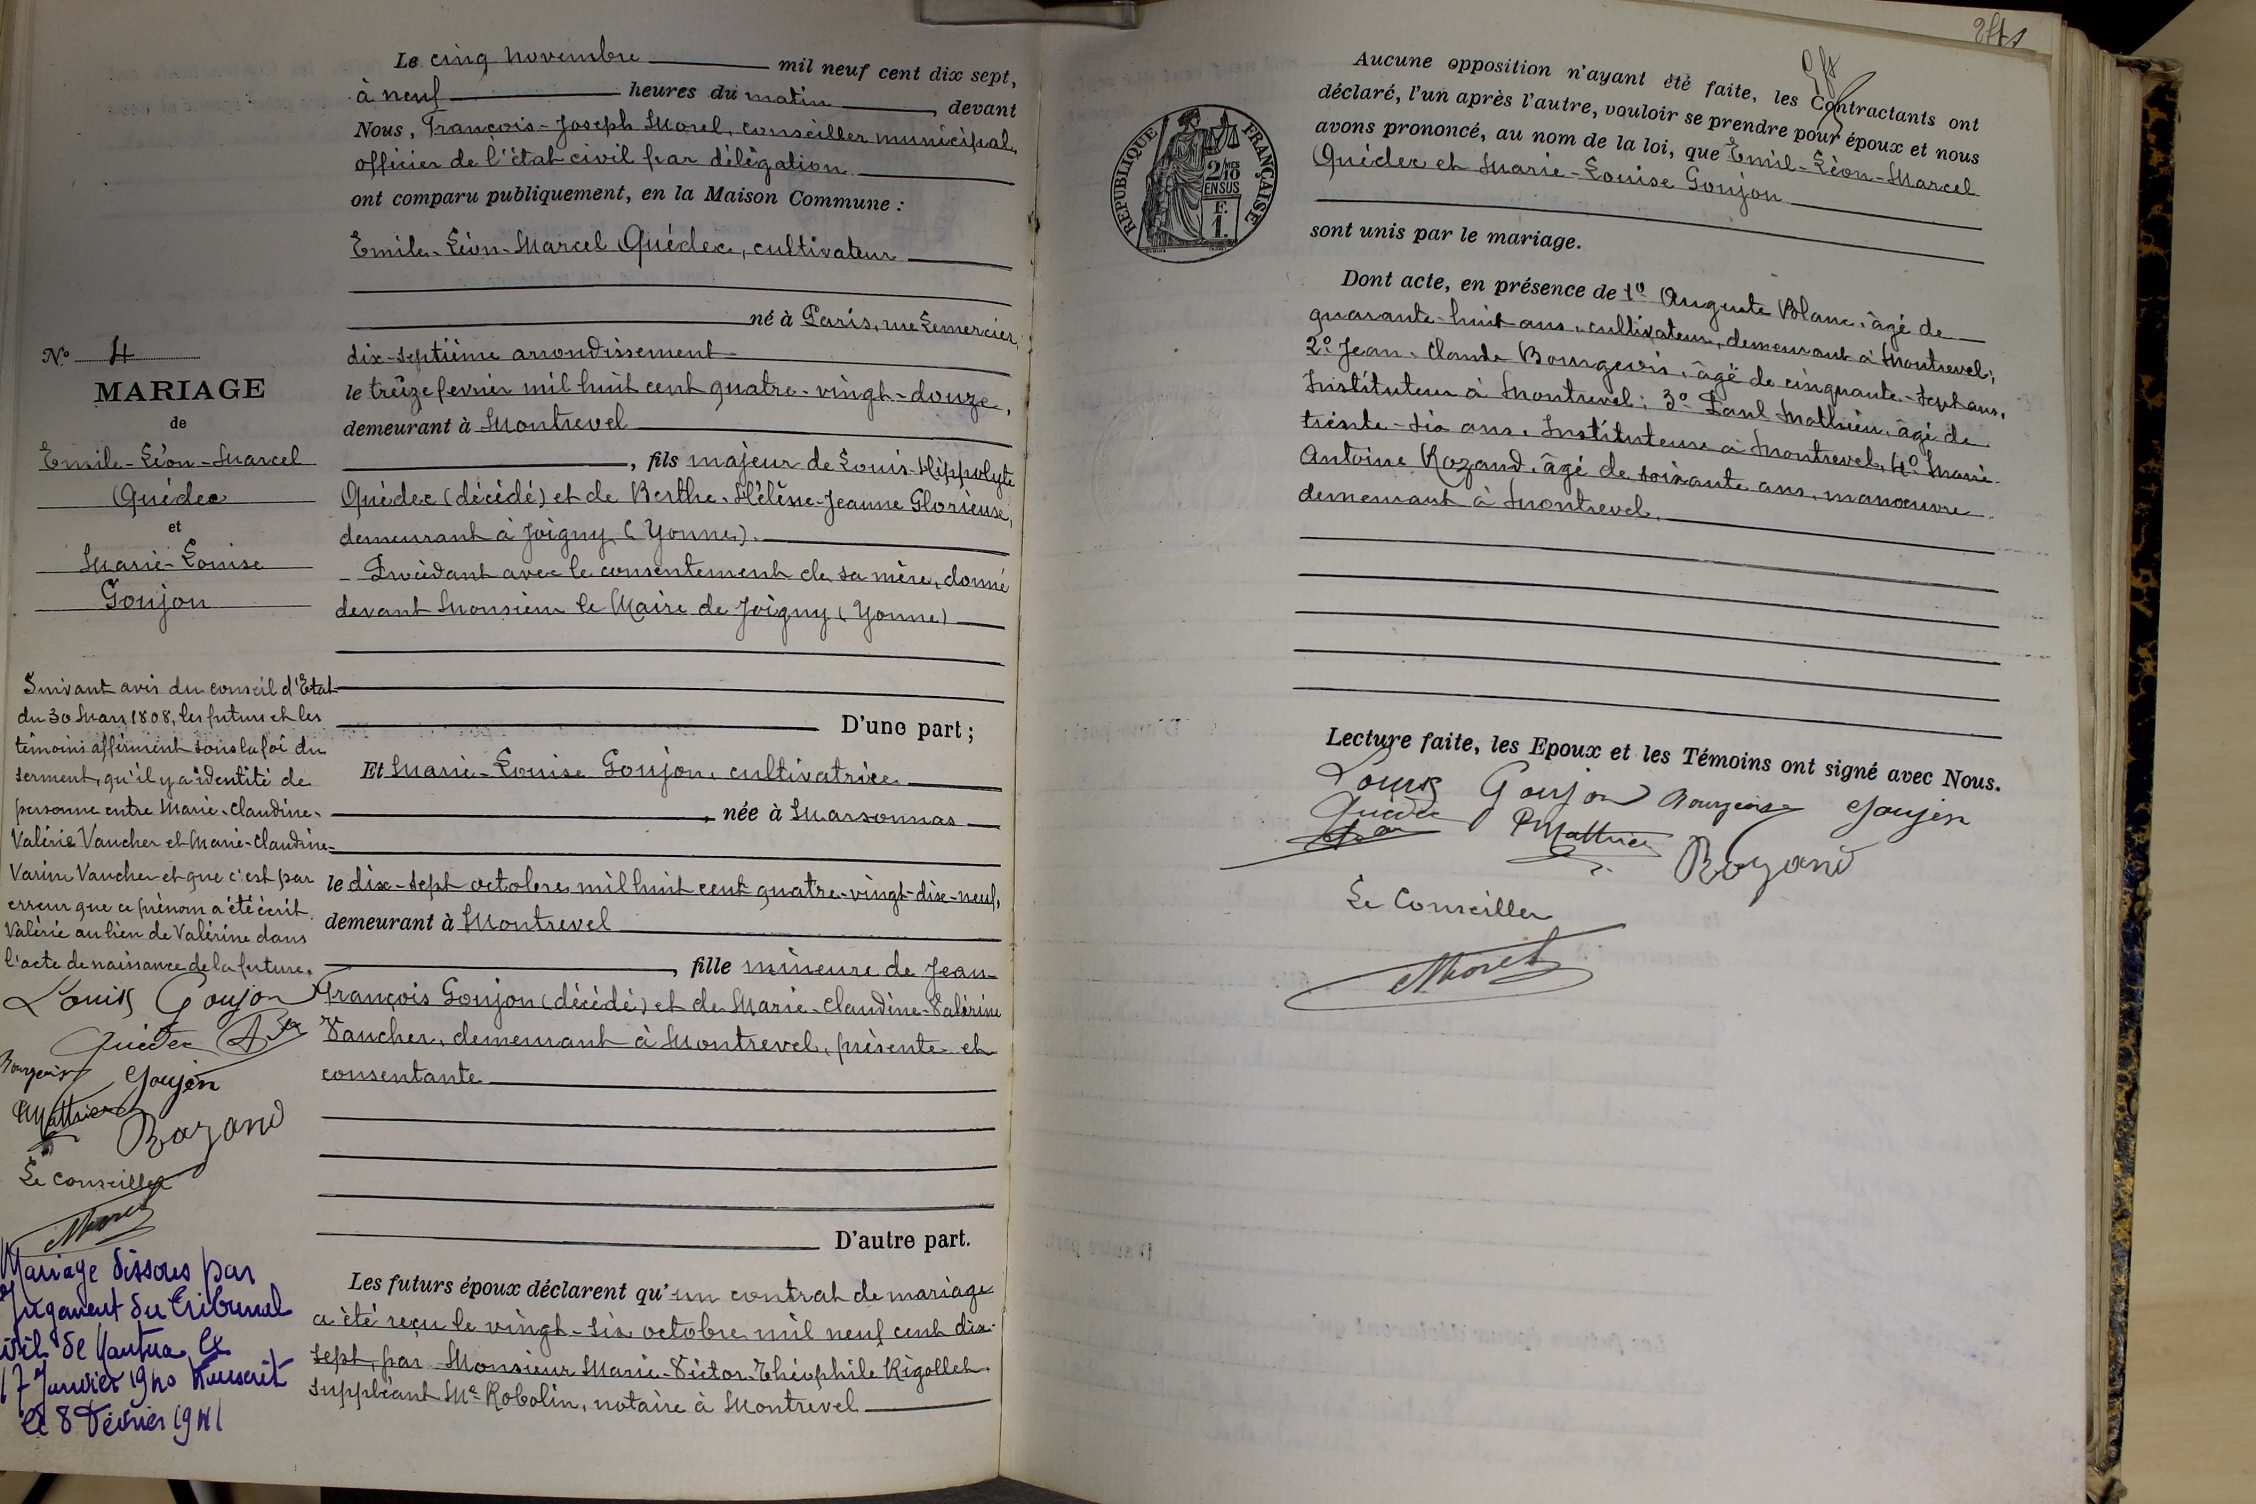 Le cinq novembre mil neuf cent dix sept,
à neuf heures du matin, devant
Nous, François-Joseph Morel, conseiller municipal,
officier de l'état civil par délégation
ont comparu publiquement, en la Maison Commune :
Emile-Léon-Marcel Quédec, cultivateur
né à Paris, rue Lemercier,
dix-septième arrondissement
le treize fevrier mil huit cent quatre-vingt-douze,
demeurant à Montrevel
, fils majeur de Louis-Hippolyte
Quédec (décédé) et de Berthe-Hélène-Jeanne Glorieuse,
demeurant à Joigny (Yonne).
Procédant avec le consentement de sa mère, donné
devant Monsieur le Maire de Joigny (Yonne)
D'une part ;
Et Marie-Louise Goujon, cultivatrice
, née à Marsonnas
le dix-sept octobre mil huit cent quatre-vingt-dix-neuf,
demeurant à Montrevel
, fille mineure de Jean-
François Goujon (décédé) et de Marie-Claudine-Valérine
Vaucher, demeurant à Montrevel, présente et
consentante
D'autre part.
Les futurs époux déclarent qu'un contrat de mariage
a été reçu le vingt-six octobre mil neuf cent dix-
sept, par Monsieur Marie-Victor-Théophile Rigollet
suppléant Me Robolin, notaire à Montrevel
No 4
MARIAGE
de
Emile-Léon-Marcel
Quédec
et
Marie-Louise
Goujon
Suivant avis du conseil d'Etat
du 30 Mars 1808, les futurs et les
témoins affirment sous la foi du
serment, qu'il y a identité de
personne entre Marie-Claudine-
Valérie Vaucher et Marie-Claudine-
Varine Vaucher et que c'est par
erreur que ce prénom a été écrit
Valérie au lieu de Valérine dans
l'acte de naissance de la future.
Louise Goujon
Quédec
Bourgeois Goujon
PMathieu
Rozand
Le Conseiller
Morel
Mariage dissous par
Jugement du Tribunal
civil de Nantua le
17 Janvier 1940 Transcrit
le 8 Février 1941
241
Aucune opposition n'ayant été faite, les Contractants ont
déclaré, l'un après l'autre, vouloir se prendre pour époux et nous
avons prononcé, au nom de la loi, que Emile-Léon-Marcel
Quédec et Marie-Louise Goujon
sont unis par le mariage.
REPUBLIQUE FRANÇAISE
2/10
EN SUS
F.
1.
Dont acte, en présence de 1o Auguste Blanc, âgé de
quarante-huit ans, cultivateur, demeurant à Montrevel;
2o Jean-Claude Bourgeois, âgé de cinquante-sept ans,
Instituteur à Montrevel; 3o Paul Mathieu, âgé de
trente-six ans, Instituteur à Montrevel, 4o Marie-
Antoine Rozand, âgé de soixante ans, manœuvre
demeurant à Montrevel.
Lecture faite, les Epoux et les Témoins ont signé avec Nous.
Louise Goujon Bourgeois Goujon
Quédec PMathieu
Rozand
Le Conseiller
Morel